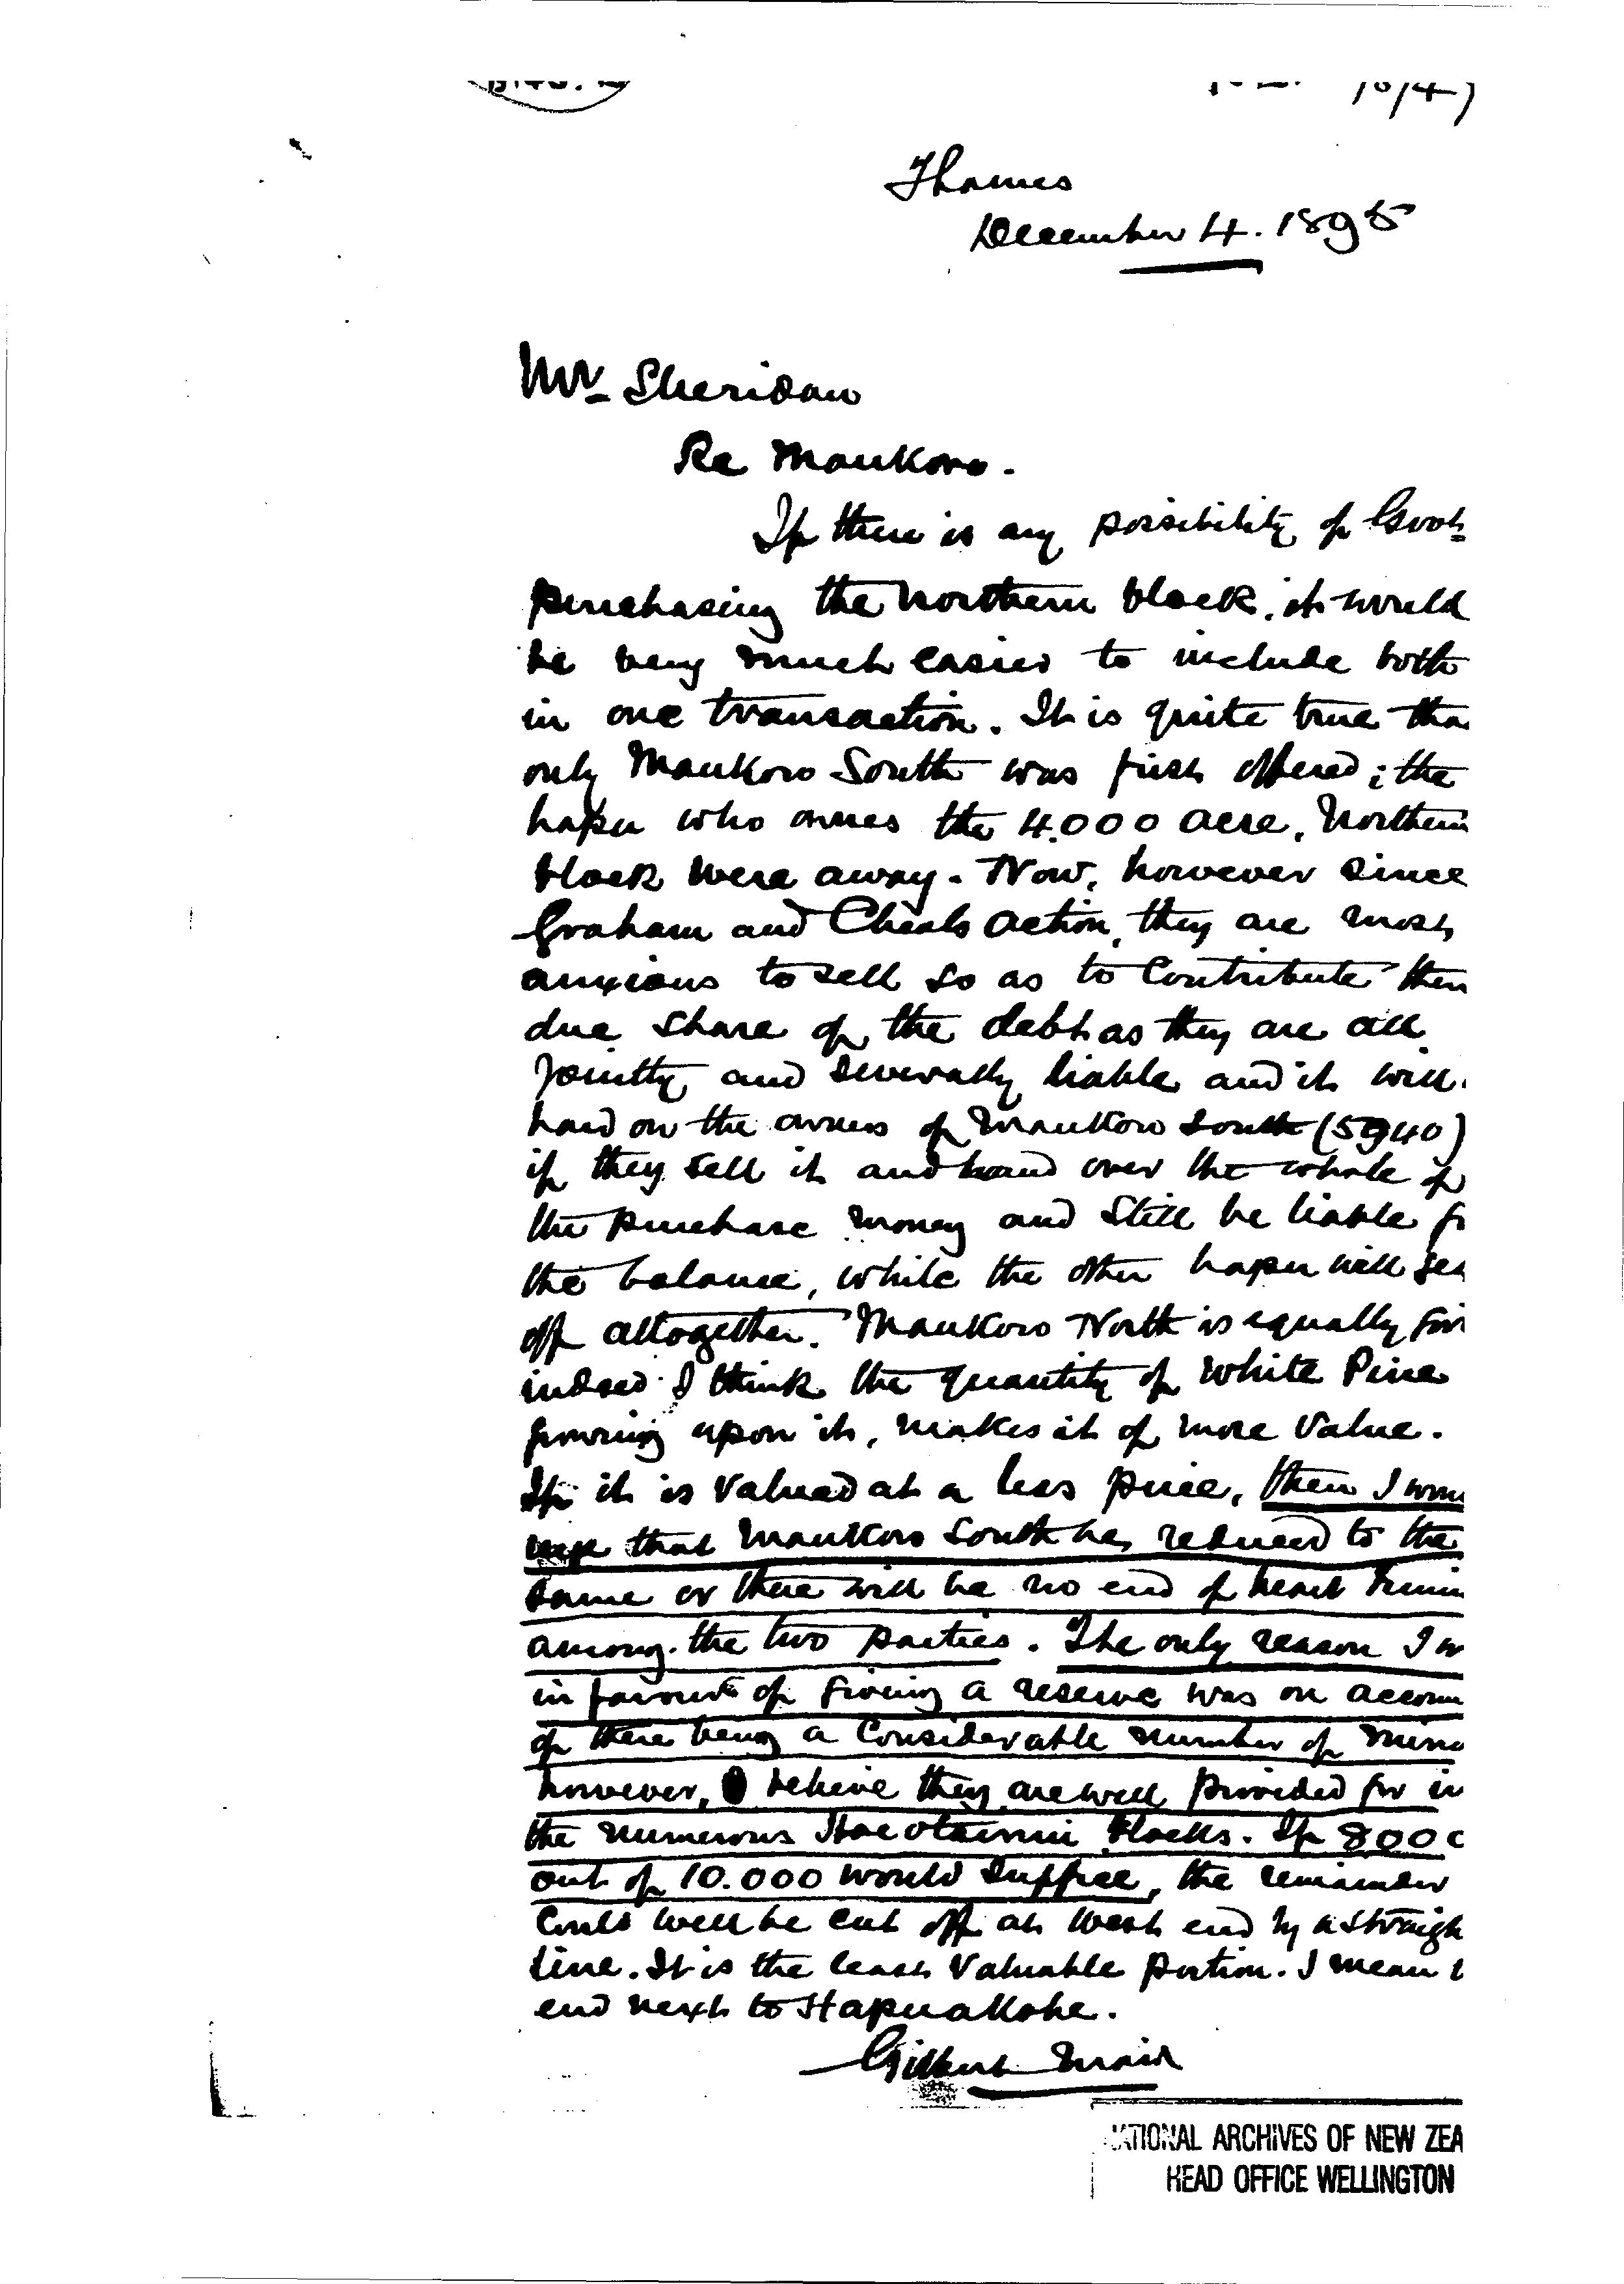 10/47
Thames
December 4. 1895
Mr Sheridan
Re Maukoro.
If there is any possibility of Govt
purchasing the Northern block, it would
be very much easier to include both
in one transaction. It is quite true tha
only Maukoro South was first offered; the
hapu who ownes the 4.000 acre, Northern
block were away. Now, however since
Graham and Cheals action, they are most
anxious to sell so as to Contribute their
due share of the debt as they are all
jointly and severally liable and it will
hard on the owners of Maukoro South (5940)
if they sell it and hand over the whole of
the purchase money and still be liable f
the balance, while the other hapu will ge
off altogether. Maukoro North is equally
indeed I think the quantity of White Pine
growing upon it, makes it of more value.
If it is valued at a less price, then I wou
urge that Maukoro South be reduced to the
same or there will be no end of heart
among the two parties. The only reason I w
in favour of giving a reserve was on accoun
of there being a Considerable number of mino
however, I believe they are well provided for in
the numerous blocks. If 8000
out of 10.000 would suffice, the remainder
Could well be cut off at West end by a straigh
line. It is the least Valuable portion. I mean t
end next to Hapuakohe.
Gilbert Mair
NATIONAL ARCHIVES OF NEW ZEA
HEAD OFFICE WELLINGTON